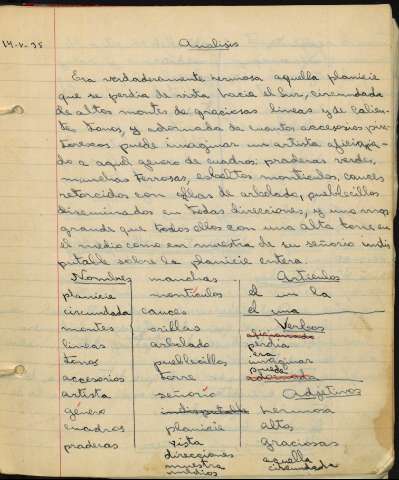 14-V-35
Analisis
Era verdaderamente hermosa aquella planicie
que se perdia de vista hacia el Sur, circundada
de altos montes de graciosas lineas y de calien-
tes tonos, y adornada de cuantos accesorios pin-
torescos puede imaginar un artista aficiona-
do a aquel género de cuadros: praderas verdes,
manchas terrosas, esbeltos montículos, cauces
retorcidos con orillas de arbolado, pueblecillos
diseminados en todas direcciones, y uno mas
grande que todos ellos con una alta torre en
el medio como en muestra de su señorio indis
putable sobre la planicie entera.
Nombres
planicie
circundada
montes
lineas
tonos
accesorios
artista
género
cuadros
praderas
manchas
montículos
cauces
orillas
arbolado
pueblecillos
torre
señorío
indisputable
planicie
vista
direcciones
muestra
medios
Artículos
el un la
el una
Verbos
aficionado
perdia
era
imaginar
puede
adornada
Adjetivos
hermosa
altos
graciosas
aquella
circundada